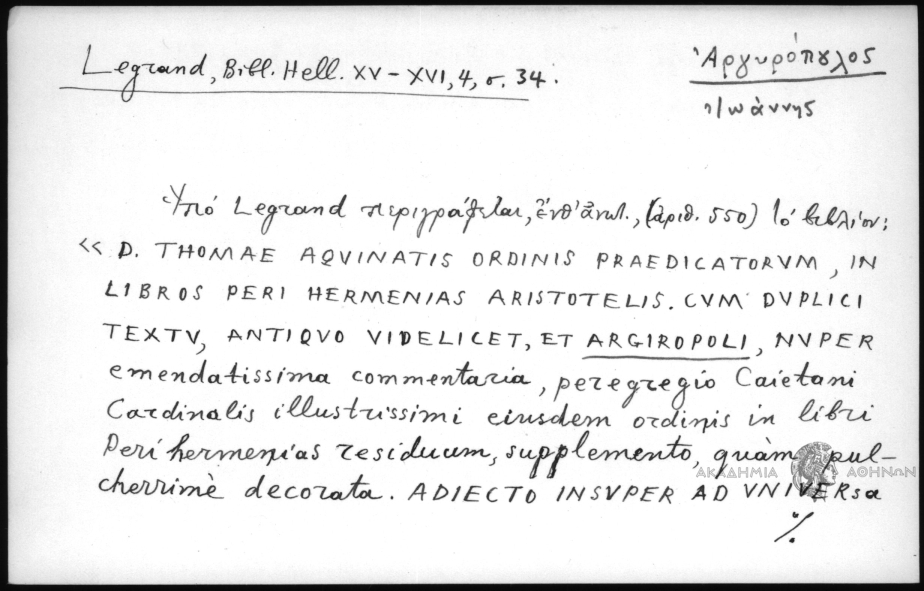 Legrand, Bibl. Hell. XV – XVI, 4, σ. 34.
Ἀργυρόπȣλος
Ἰωάννης
Ὑπό Legrand περιγράφεται, ἔνθ' ἀνωτ., (ἀριθ. 550) τό βιβλίον:
<< D. THOMAE AQVINATIS ORDINIS PRAEDICATORVM, IN
LIBROS PERI HERMENIAS ARISTOTELIS. CVM DVPLICI
TEXTV, ANTIQVO VIDELICET, ET ARGIROPOLI, NVPER
emendatissima commentaria, peregregio Caietani
Cardinalis illustrissimi eiusdem ordinis in libri
Peri hermenias residuum, supplemento, quàm pul-
cherrimè decorata. ADIECTO INSVPER AD VNIVERsa
ΑΚΑΔΗΜΙΑ ΑΘΗΝΩΝ
./.